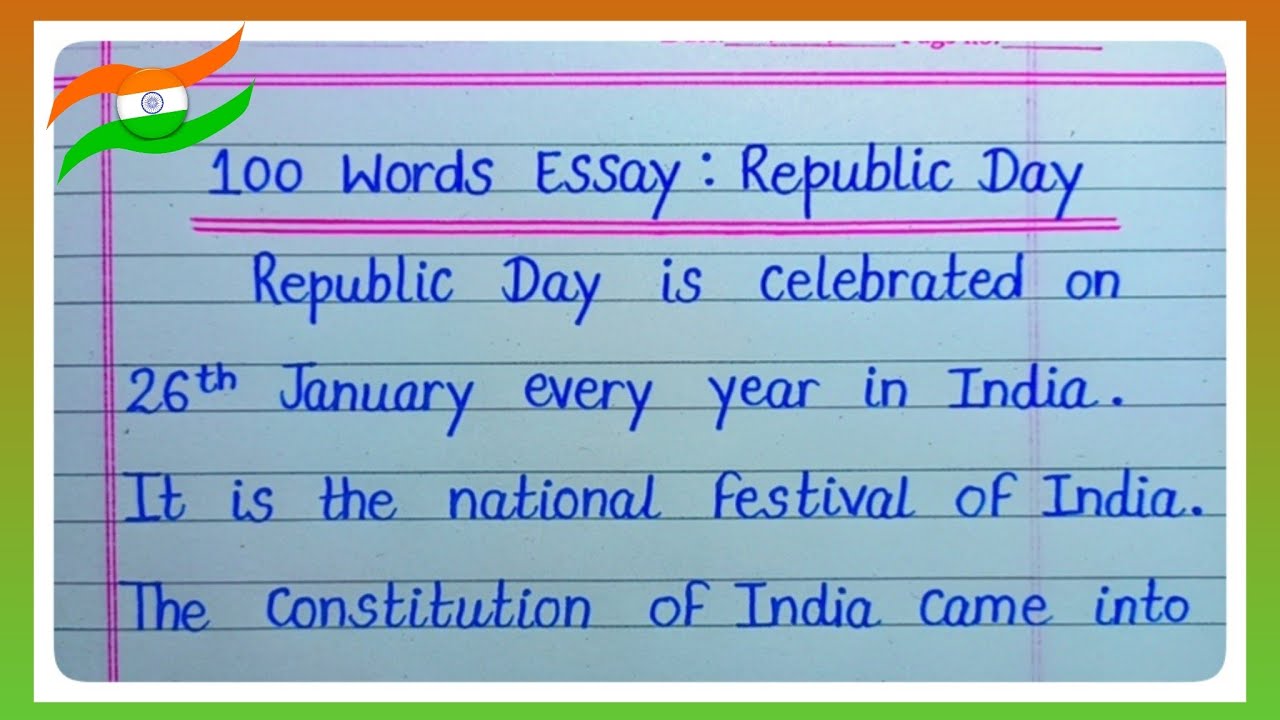 100 Words Essay : Republic Day
Republic Day is celebrated on
26th January every year in India.
It is the national festival of India.
The Constitution of India came into